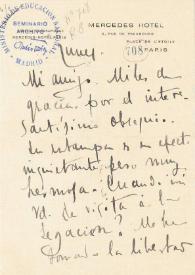 MINISTERIO EDUCACION NACIONAL
SEMINARIO
ARCHIVO
MADRID
MERCEDES HOTEL
PLACE DE L'ETOILE
PARIS
708
Lunes.
Mi amigo. Miles de
gracias por el intere-
santísimo obsequio.
La estampa es en efecto
inquietante, pero muy
hermosa. Cuando irá
Vd. de visita á la
Legacion? Me he
tomado la libertad